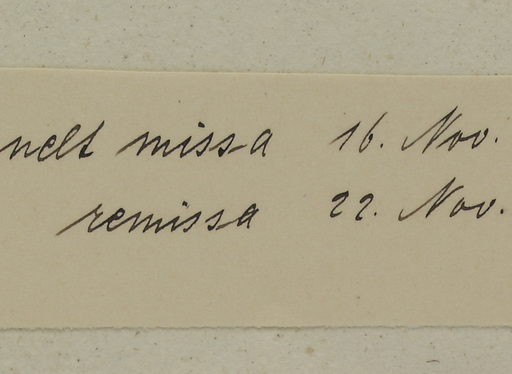 nelt missa 16. Nov.
remissa 22. Nov.